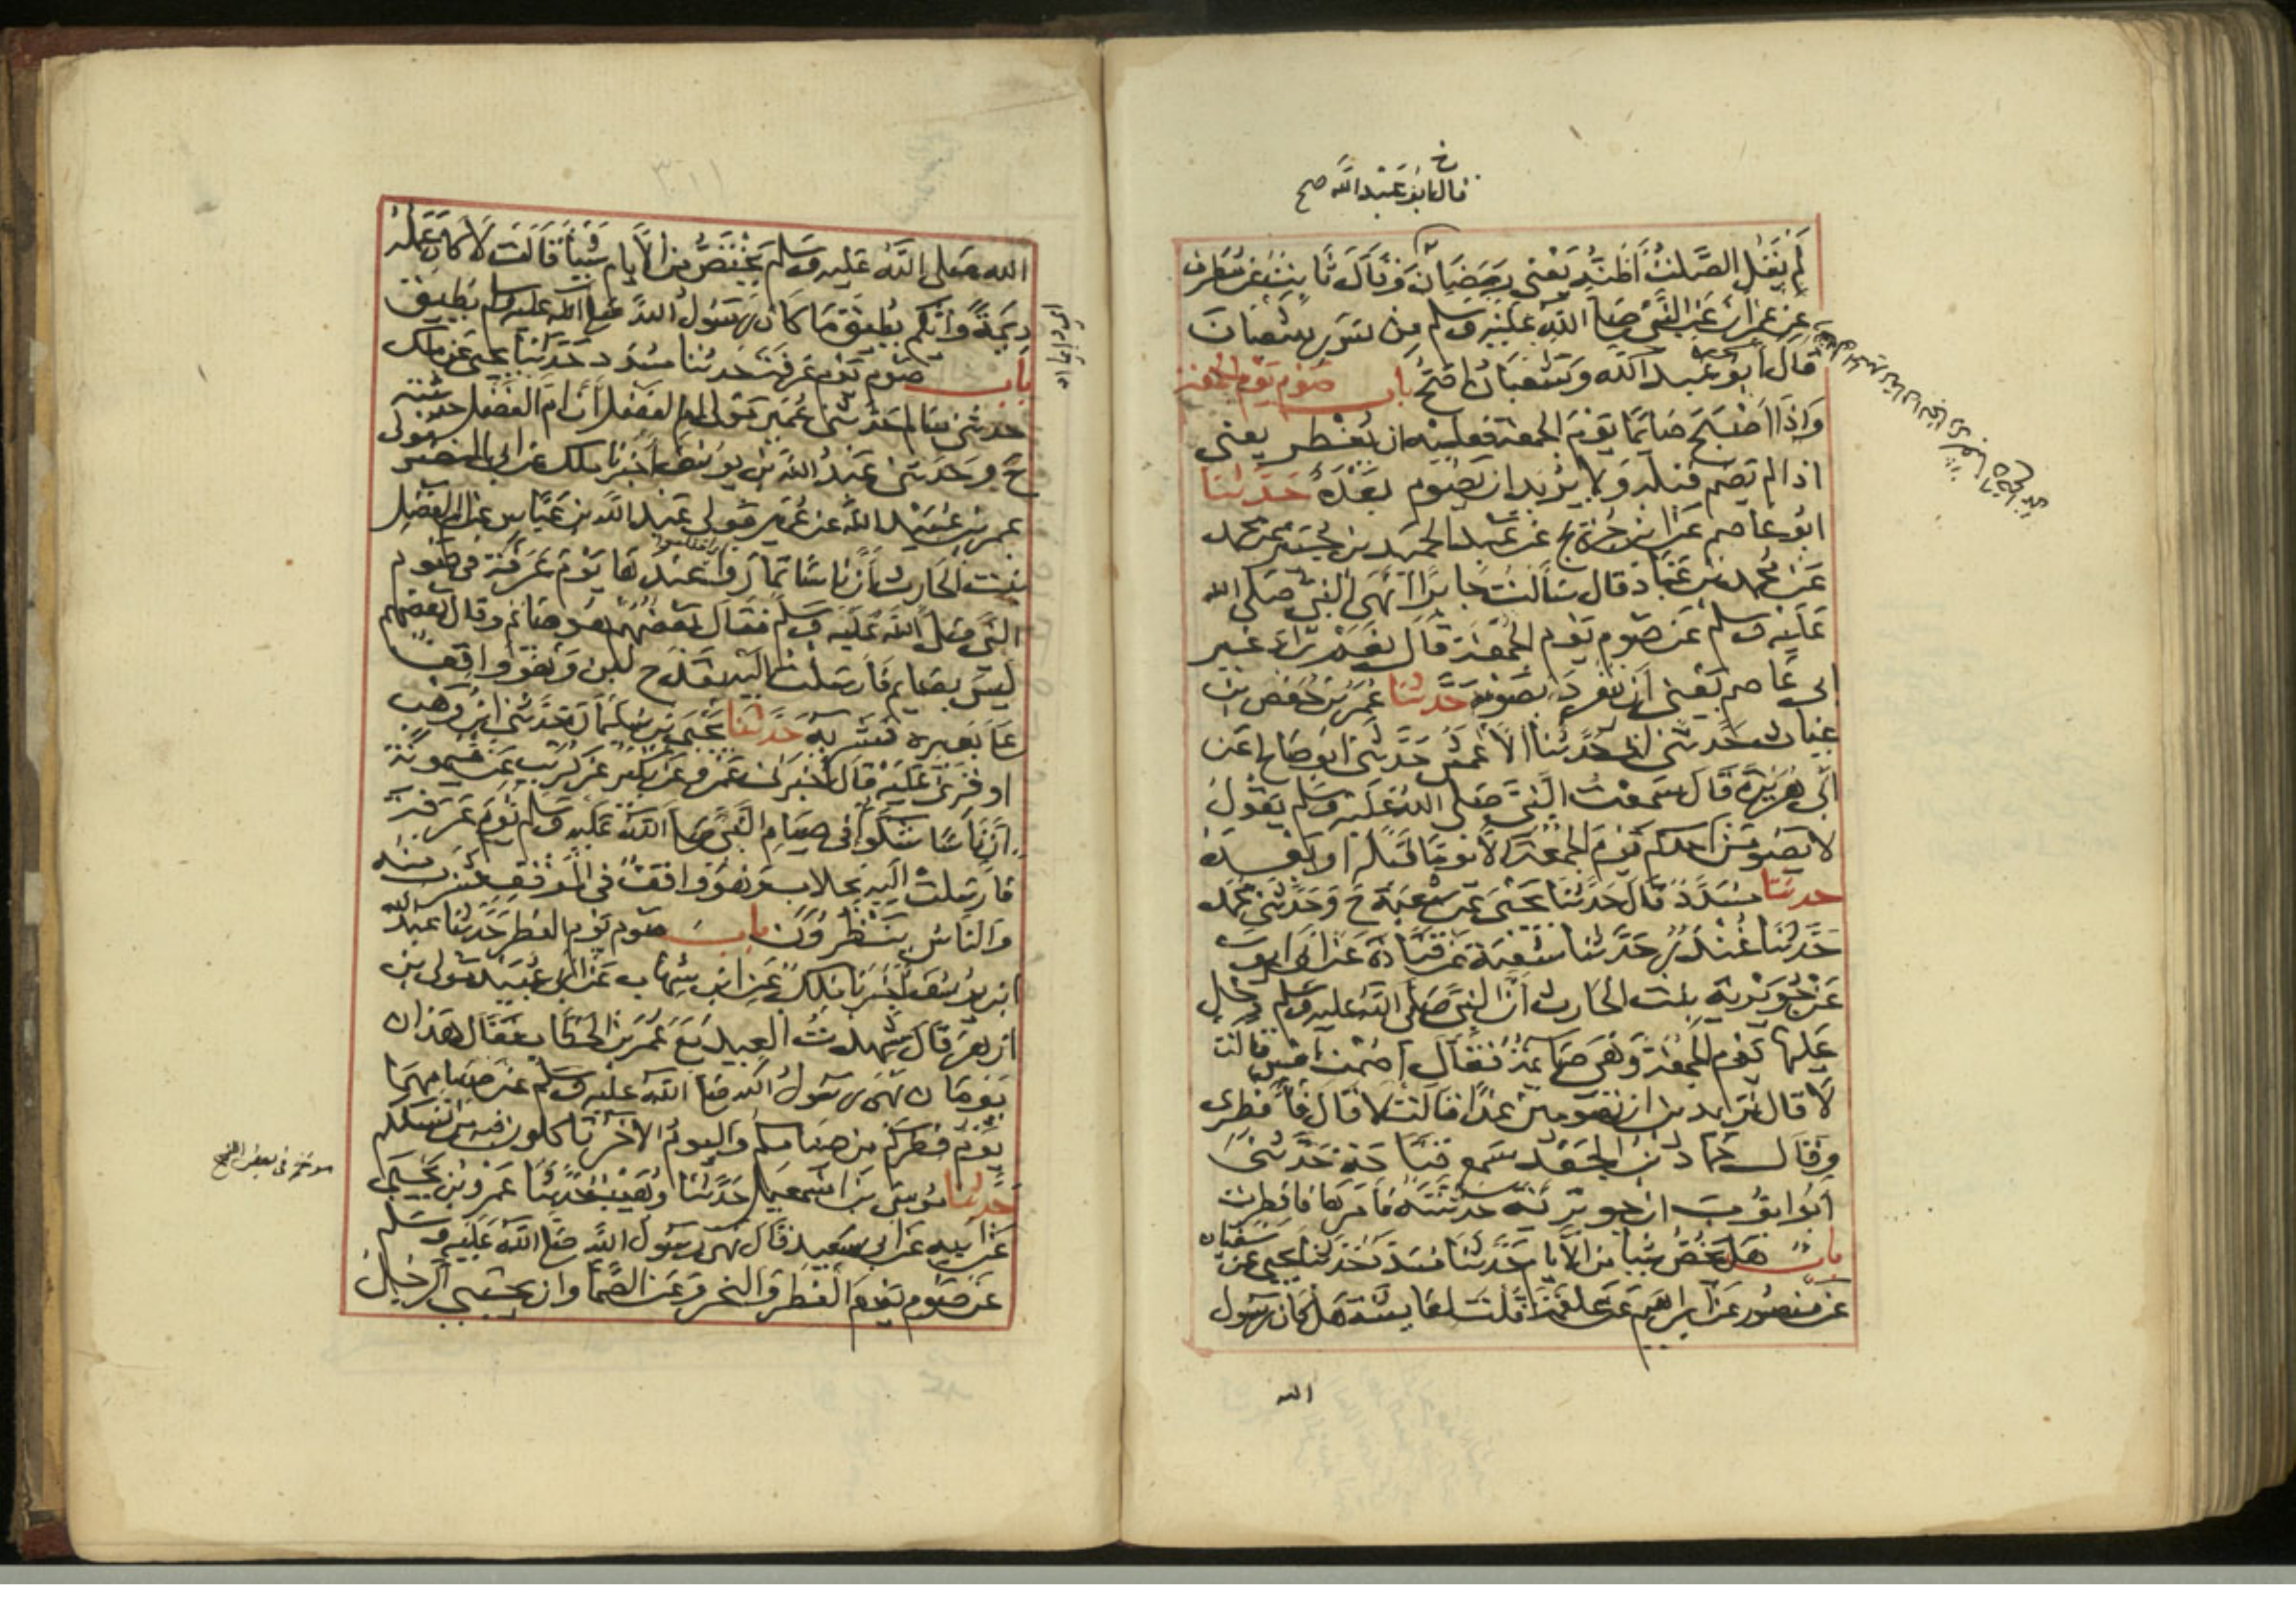 خ
قال ابو عبد الله صح
لم يقل الصلت اظنه يعني رمضان وقال ثابت عن مطرف
عن عمران عن النبي صلى الله عليه وسلم من سرر شعبان
قال ابو عبد الله وشعبان اصح باب صوم يوم الجمعة
واذا اصبح صائما يوم الجمعة فعليه ان يفطر يعني
اذا لم يصم قبله ولا يريد ان يصوم بعده حدثنا
ابو عاصم عن ابن جريج عن عبد الحميد بن جبير عن محمد
عن محمد بن عباد قال سالت جابرا انهى النبي صلى الله
عليه وسلم عن صوم يوم الجمعة قال نعم زاد غير
ابي عاصم يعني ان ينفرد بصومه حدثنا عمر بن حفص بن
غياث حدثني ابي حدثنا الاعمش حدثني ابو صالح عن
ابي هريرة قال سمعت النبي صلى الله عليه وسلم يقول
لا يصومن احدكم يوم الجمعة الا يوما قبله او بعده
حدثنا مسدد قال حدثنا يحيى عن شعبة ح وحدثني محمد
حدثنا غندر حدثنا شعبة عن قتادة عن ابي ايوب
عن جويرية بنت الحارث ان النبي صلى الله عليه وسلم دخل
عليها يوم الجمعة وهي صائمة فقال اصمت امس قالت
لا قال تريدين ان تصومين غدا قالت لا قال فافطري
وقال حماد بن الجعد سمع قتادة حدثني
ابو ايوب ان جويرية حدثته فامرها فافطرت
باب هل يخص شيئا من الايام حدثنا مسدد حدثنا يحيى عن سفيان
عن منصور عن ابراهيم عن علقمة قلت لعايشة هل كان رسول
الله
الله صلى الله عليه وسلم يختص من الايام شيئا قالت لا كان عمله
ديمة وايكم يطيق ما كان رسول الله صلى الله عليه وسلم يطيق
باب صوم يوم عرفة حدثنا مسدد حدثنا يحيى عن ملك
حدثني سالم حدثني عمير مولى ام الفضل ان ام الفضل حدثته
ح وحدثني عبد الله بن يوسف اخبرنا ملك عن ابي النضر مولى
عمر بن عبيد الله عن عمير مولى عبد الله بن عباس عن ام الفضل
بنت الحارث ان ناسا تماروا عندها يوم عرفة في صوم
النبي صلى الله عليه وسلم فقال بعضهم هو صائم وقال بعضهم
ليس بصايم فارسلت اليه بقدح لبن وهو واقف
على بعيره فشربه حدثنا يحيى بن سليمان حدثني ابن وهب
او قرئ عليه قال اخبرني عمرو عن بكير عن كريب عن ميمونة
ان ناسا شكوا في صيام النبي صلى الله عليه وسلم يوم عرفة
فارسلت اليه بحلاب وهو واقف في الموقف فشرب منه
والناس ينظرون باب صوم يوم الفطر حدثنا عبد الله
ابن يوسف اخبرنا ملك عن ابن شهاب عن ابي عبيد مولى بن
ازهر قال شهدت العيد مع عمر بن الخطاب فقال هذان
يومان نهى رسول الله صلى الله عليه وسلم عن صيامهما
يوم فطركم من صيامكم واليوم الاخر تاكلون فيه من نسككم
حدثنا موسى بن اسمعيل حدثنا وهيب حدثنا عمرو بن يحيى
عن ابيه عن ابي سعيد قال نهى رسول الله صلى الله عليه وسلم
عن صوم يوم الفطر والنحر وعن الصما وان يحتبي الرجل